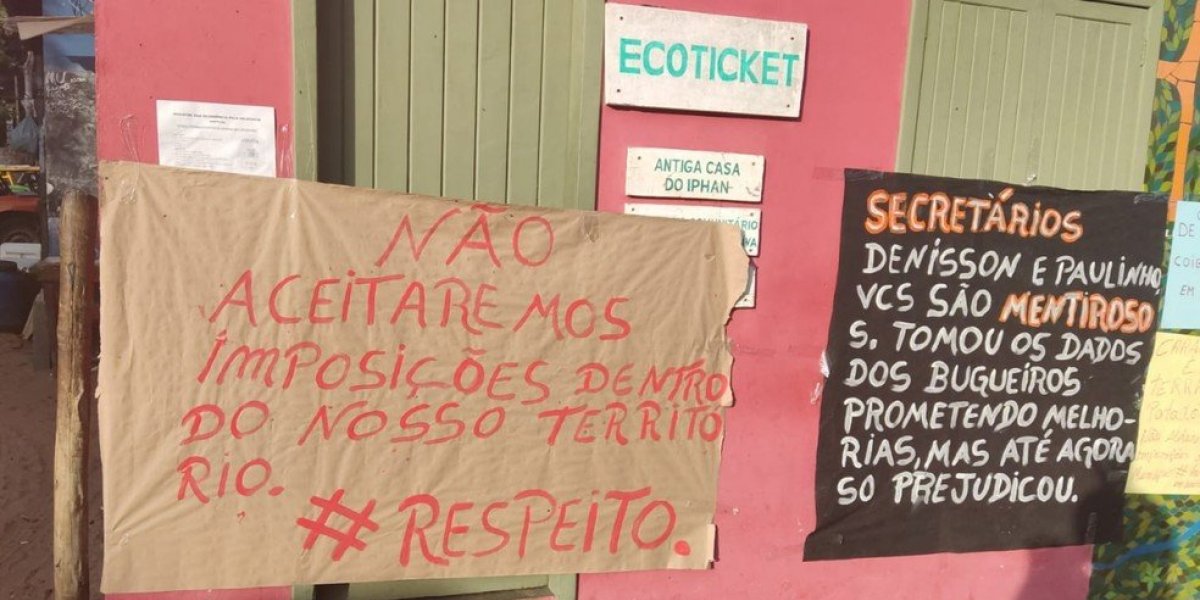 ECOTICKET
ANTIGA CASA
DO IPHAN
NÃO
ACEITAREMOS
IMPOSIÇÕES DENTRO
DO NOSSO TERRITÓ
RIO.
#RESPEITO.
SECRETÁRIOS
DENISSON E PAULINHO,
VCS SÃO MENTIROSO
S. TOMOU OS DADOS
DOS BUGUEIROS
PROMETENDO MELHO-
RIAS, MAS ATÉ AGORA
SO PREJUDICOU.
DE
EM